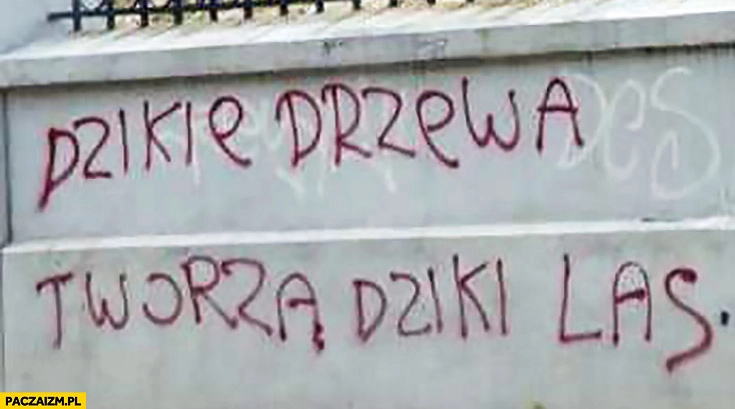 DZIKIE DRZEWA
TWORZĄ DZIKI LAS.
DES
PACZAIZM.PL